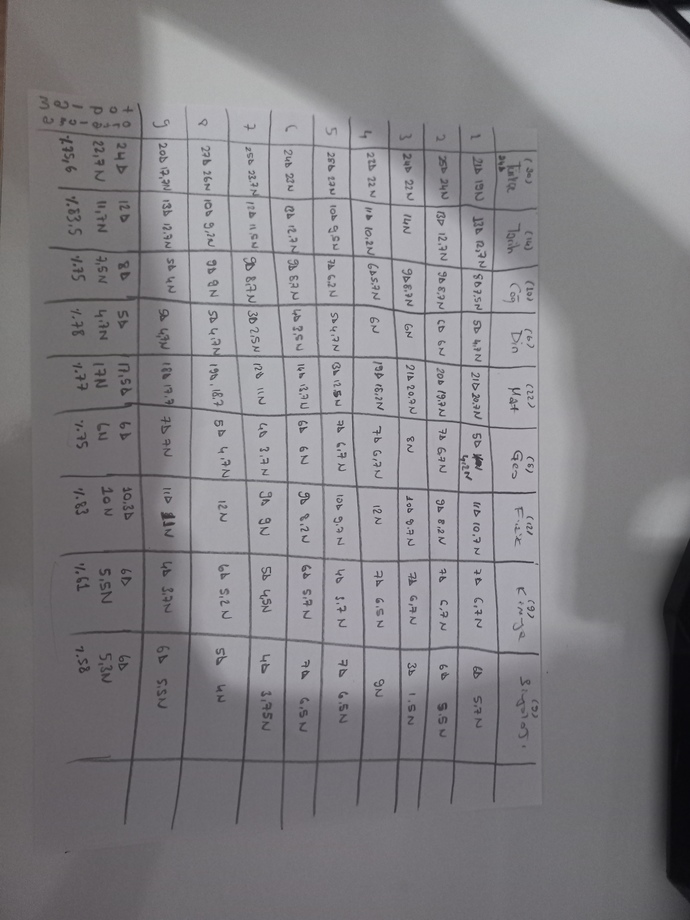 (30) (14) (10) (6) (22) (8) (12) (9) (9)
Türkçe Tarih Coğ Din Mat Geo Fizik Kimya Biyoloji
1 21D 19N 13D 12,7N 8D 7,5N 5D 4,7N 21D 20,7N 5D 4,2N 11D 10,7N 7D 6,7N 6D 5,7N
2 25D 24N 13D 12,7N 9D 8,7N 6D 6N 20D 19,7N 7D 6,7N 9D 8,2N 7D 6,7N 6D 5.5N
3 24D 22N 14N 9D 8,7N 6N 21D 20,7N 8N 10D 9.7N 7D 6,7N 3D 1.5N
4 22D 22N 11D 10,2N 6D 5,7N 6N 19D 18,2N 7D 6,7N 12N 7D 6,5N 9N
5 28D 27N 10D 9,5N 7D 6,2N 5D 4,7N 13D 12.5N 7D 6,7N 10D 9,7N 4D 3,7N 7D 6.5N
6 24D 23N 13D 12.7N 9D 8,7N 4D 3,5N 14D 13,7N 6D 6N 9D 8,2N 6D 5,7N 7D 6,5N
7 25D 23,7N 12D 11,5N 9D 8,7N 3D 2,5N 12D 11N 4D 3,7N 9D 9N 5D 4,5N 4D 3,75N
8 27D 26N 10D 9,2N 9D 9N 5D 4,7N 19D, 18.7 5D 4,7N 12N 6D 5,2N 5D 4N
9 20D 17,7N 13D 12,7N 5D 4N 5D 4,7N 18D 17,7 7D 7N 11D 11N 4D 3,7N 6D 5.5N
24D 12D 8D 5D 17,5D 6D 10,3D 6D 6D
22,7N 11,7N 7,5N 4,7N 17N 6N 10N 5,5N 5,3N
%75,6 %83.5 %75 %78 %77 %75 %83 %61 %58